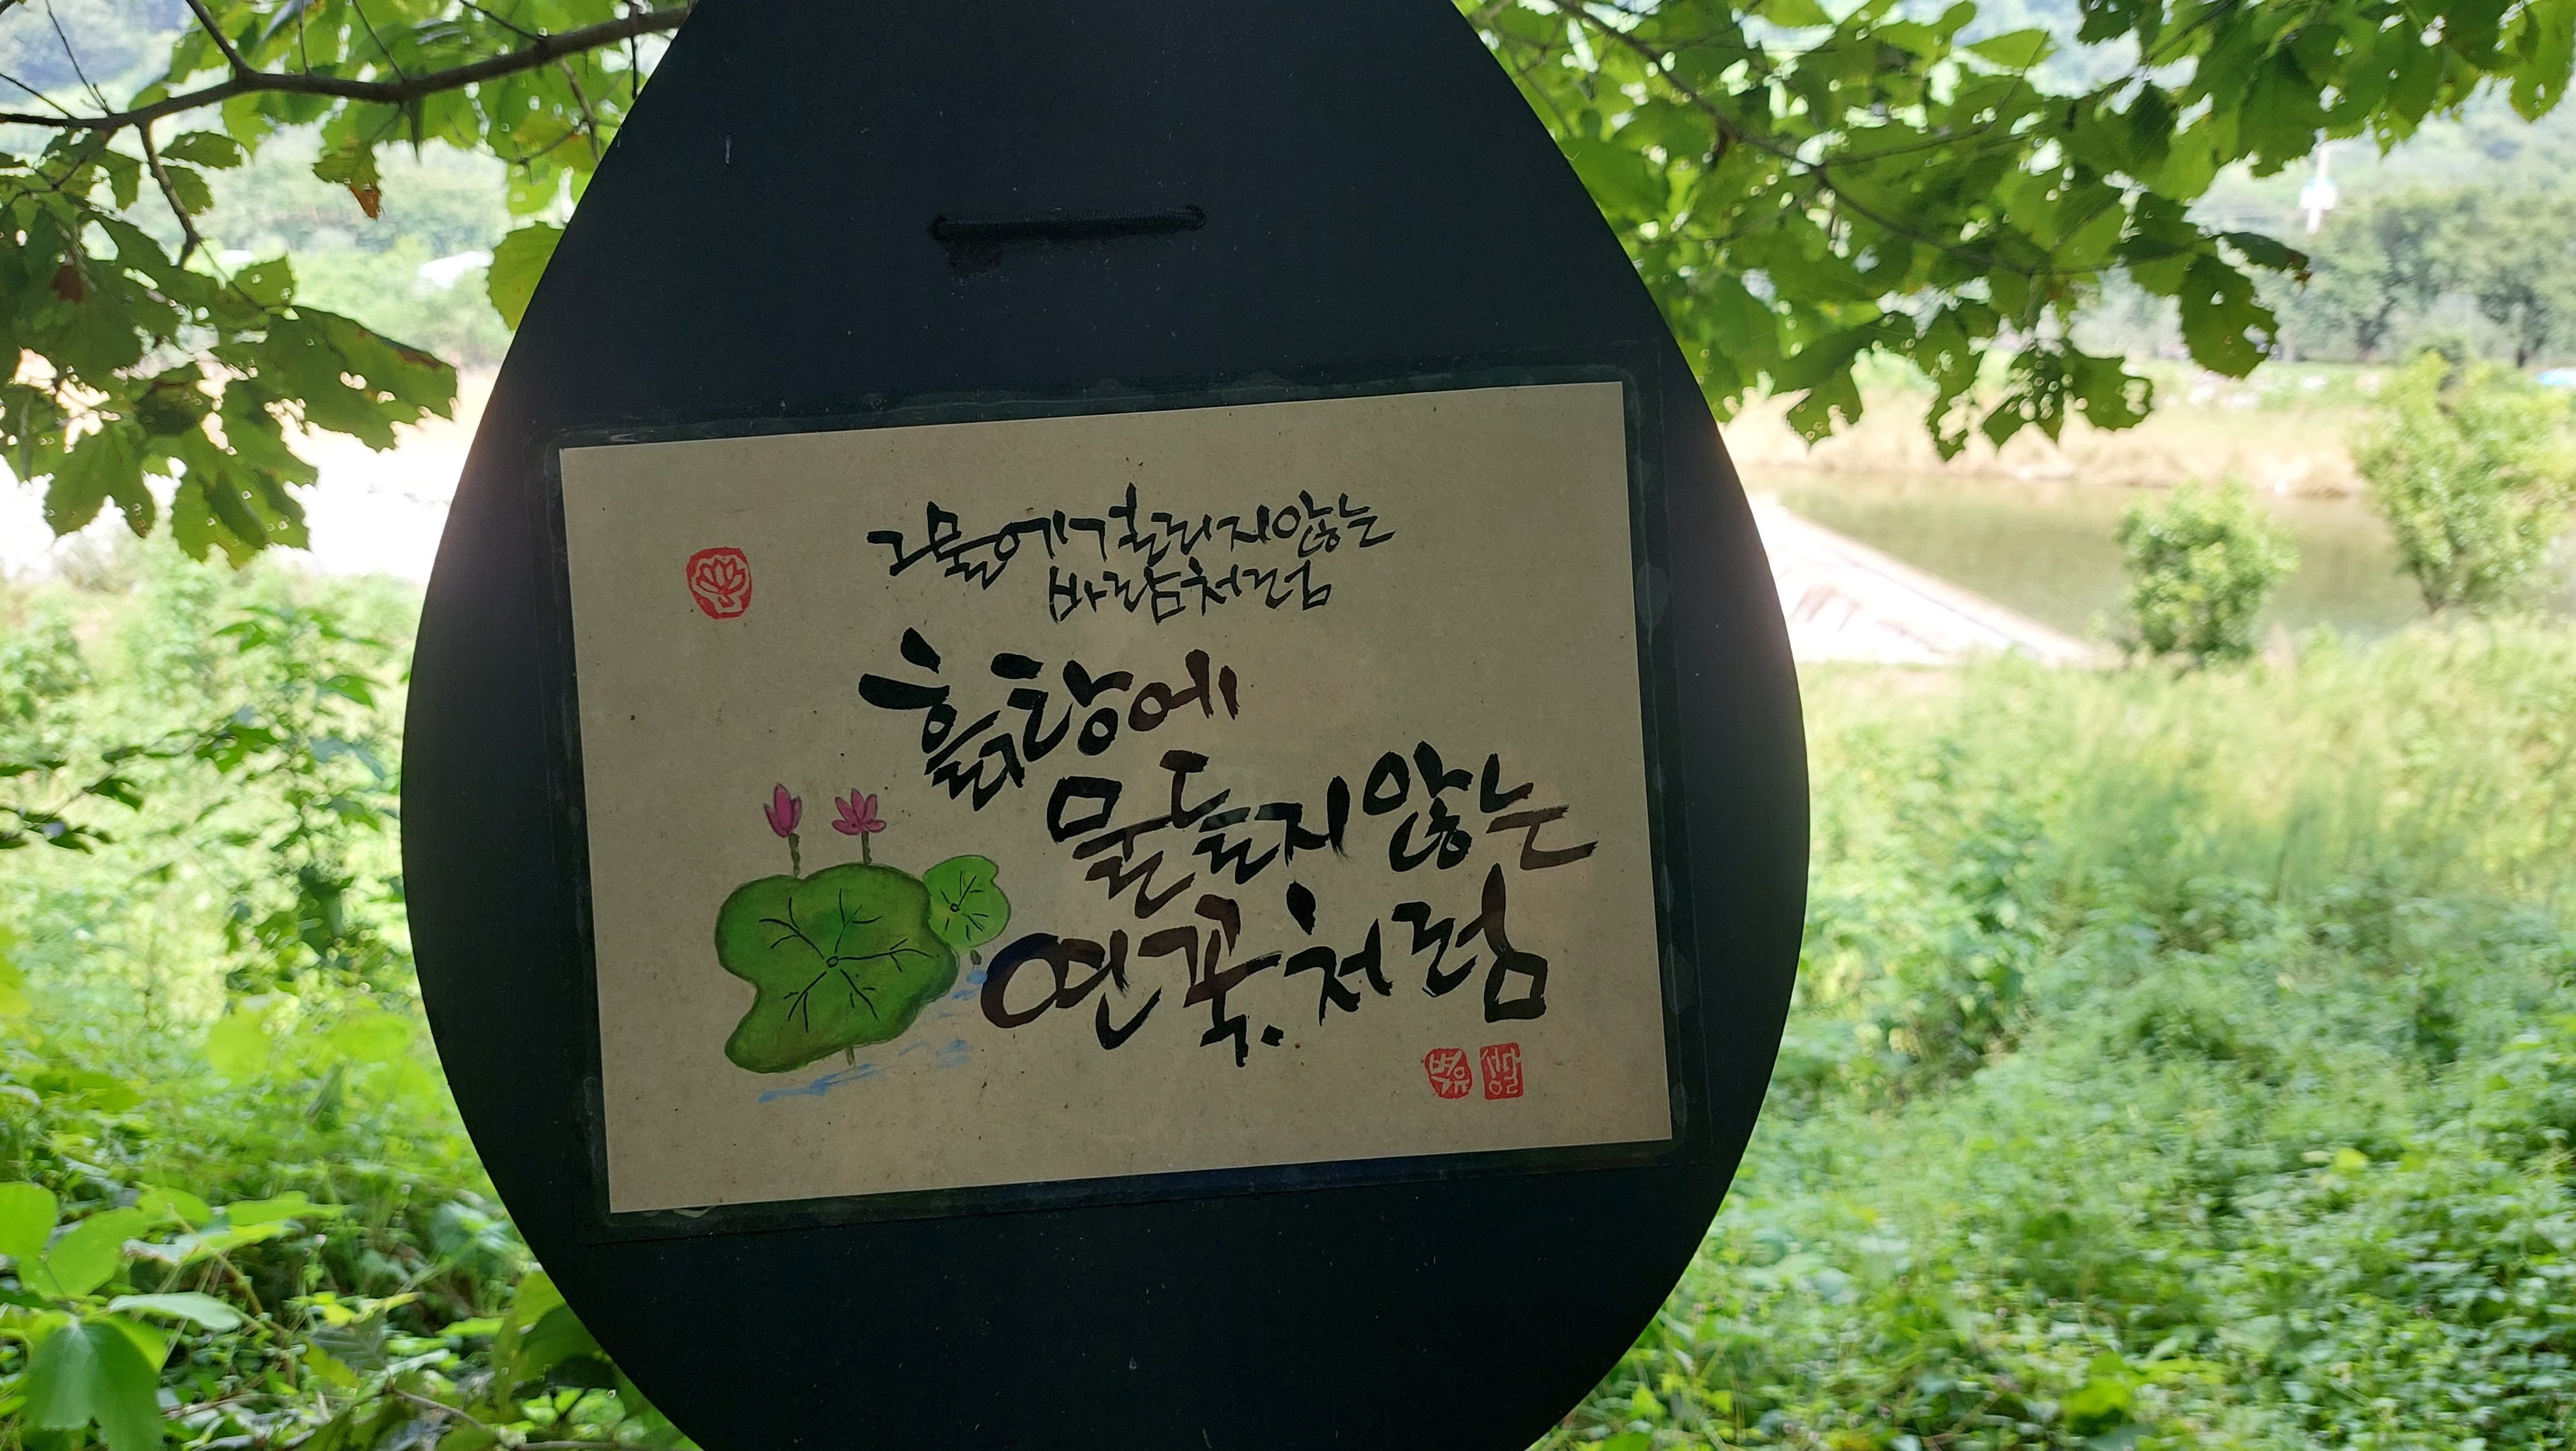 그물에 걸리지 않는
바람처럼
흙탕에
물들지 않는
연꽃처럼
벽유 성달